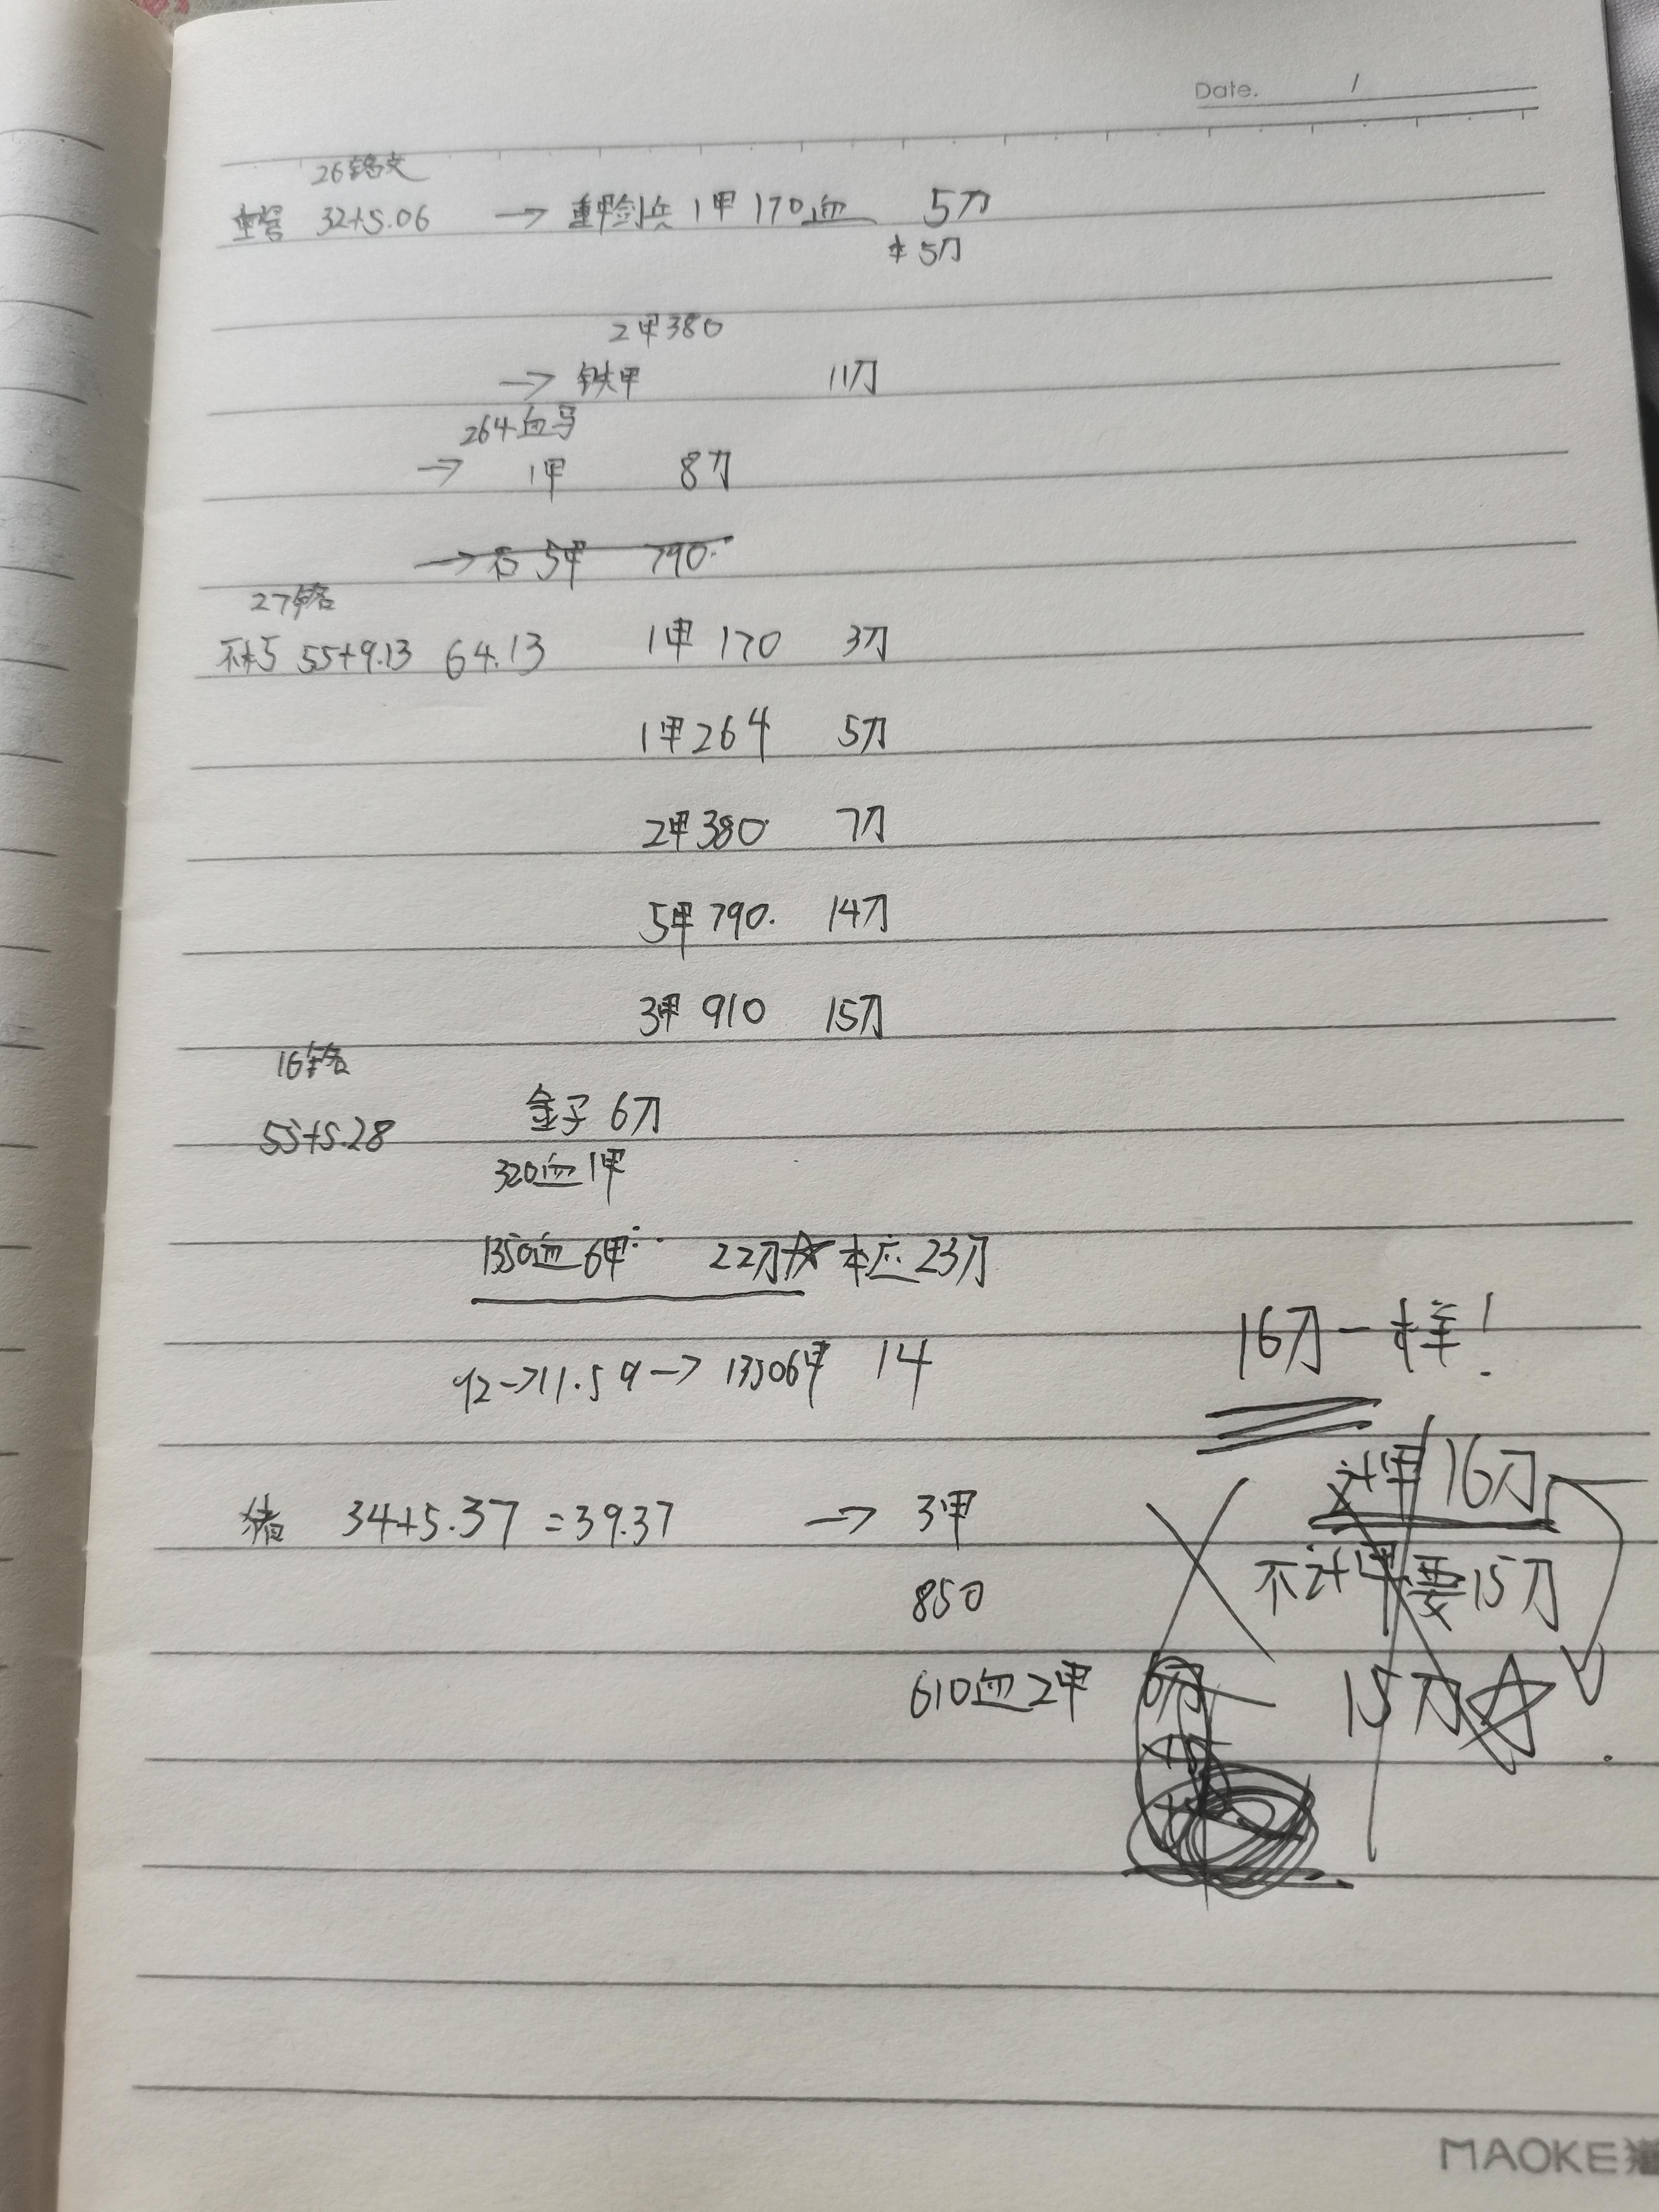 Date. /
26铭文
32+5.06 → 重甲剑兵 1甲 170血 5刀
本5刀
2甲380
→ 铁甲 11刀
264血马
→ 1甲 8刀
→石 5甲 790.
27铭
55+9.13 64.13 1甲 170 3刀
1甲264 5刀
2甲380 7刀
5甲790. 14刀
3甲 910 15刀
16铭
55+5.28 金子 6刀
320血1甲
1350血6甲 22刀 本应23刀
16刀一样!
92→11.59→13506甲 14
计甲16刀
猪 34+5.37=39.37 → 3甲
不计甲要15刀
850
610血2甲 6刀 15刀
MAOKE